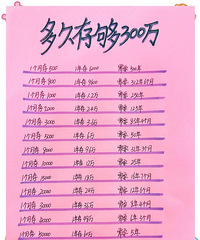 多久存够300万
1个月存500 1年存6000 需要500年
1个月存800 1年存9600 需要312年6个月
1个月存1000 1年存1.2万 需要250年
1个月存2000 1年存2.4万 需要125年
1个月存3000 1年存3.6万 需要83年4个月
1个月存5000 1年存6万 需要50年
1个月存8000 1年存9.6万 需要31年3个月
1个月存10000 1年存12万 需要25年
1个月存15000 1年存18万
1个月存20000 1年存24万 需要12年6个月
1个月存30000 1年存36万 需要8年4个月
1个月存40000 1年存48万 需要6年3个月
1个月存50000 1年存60万 需要5年